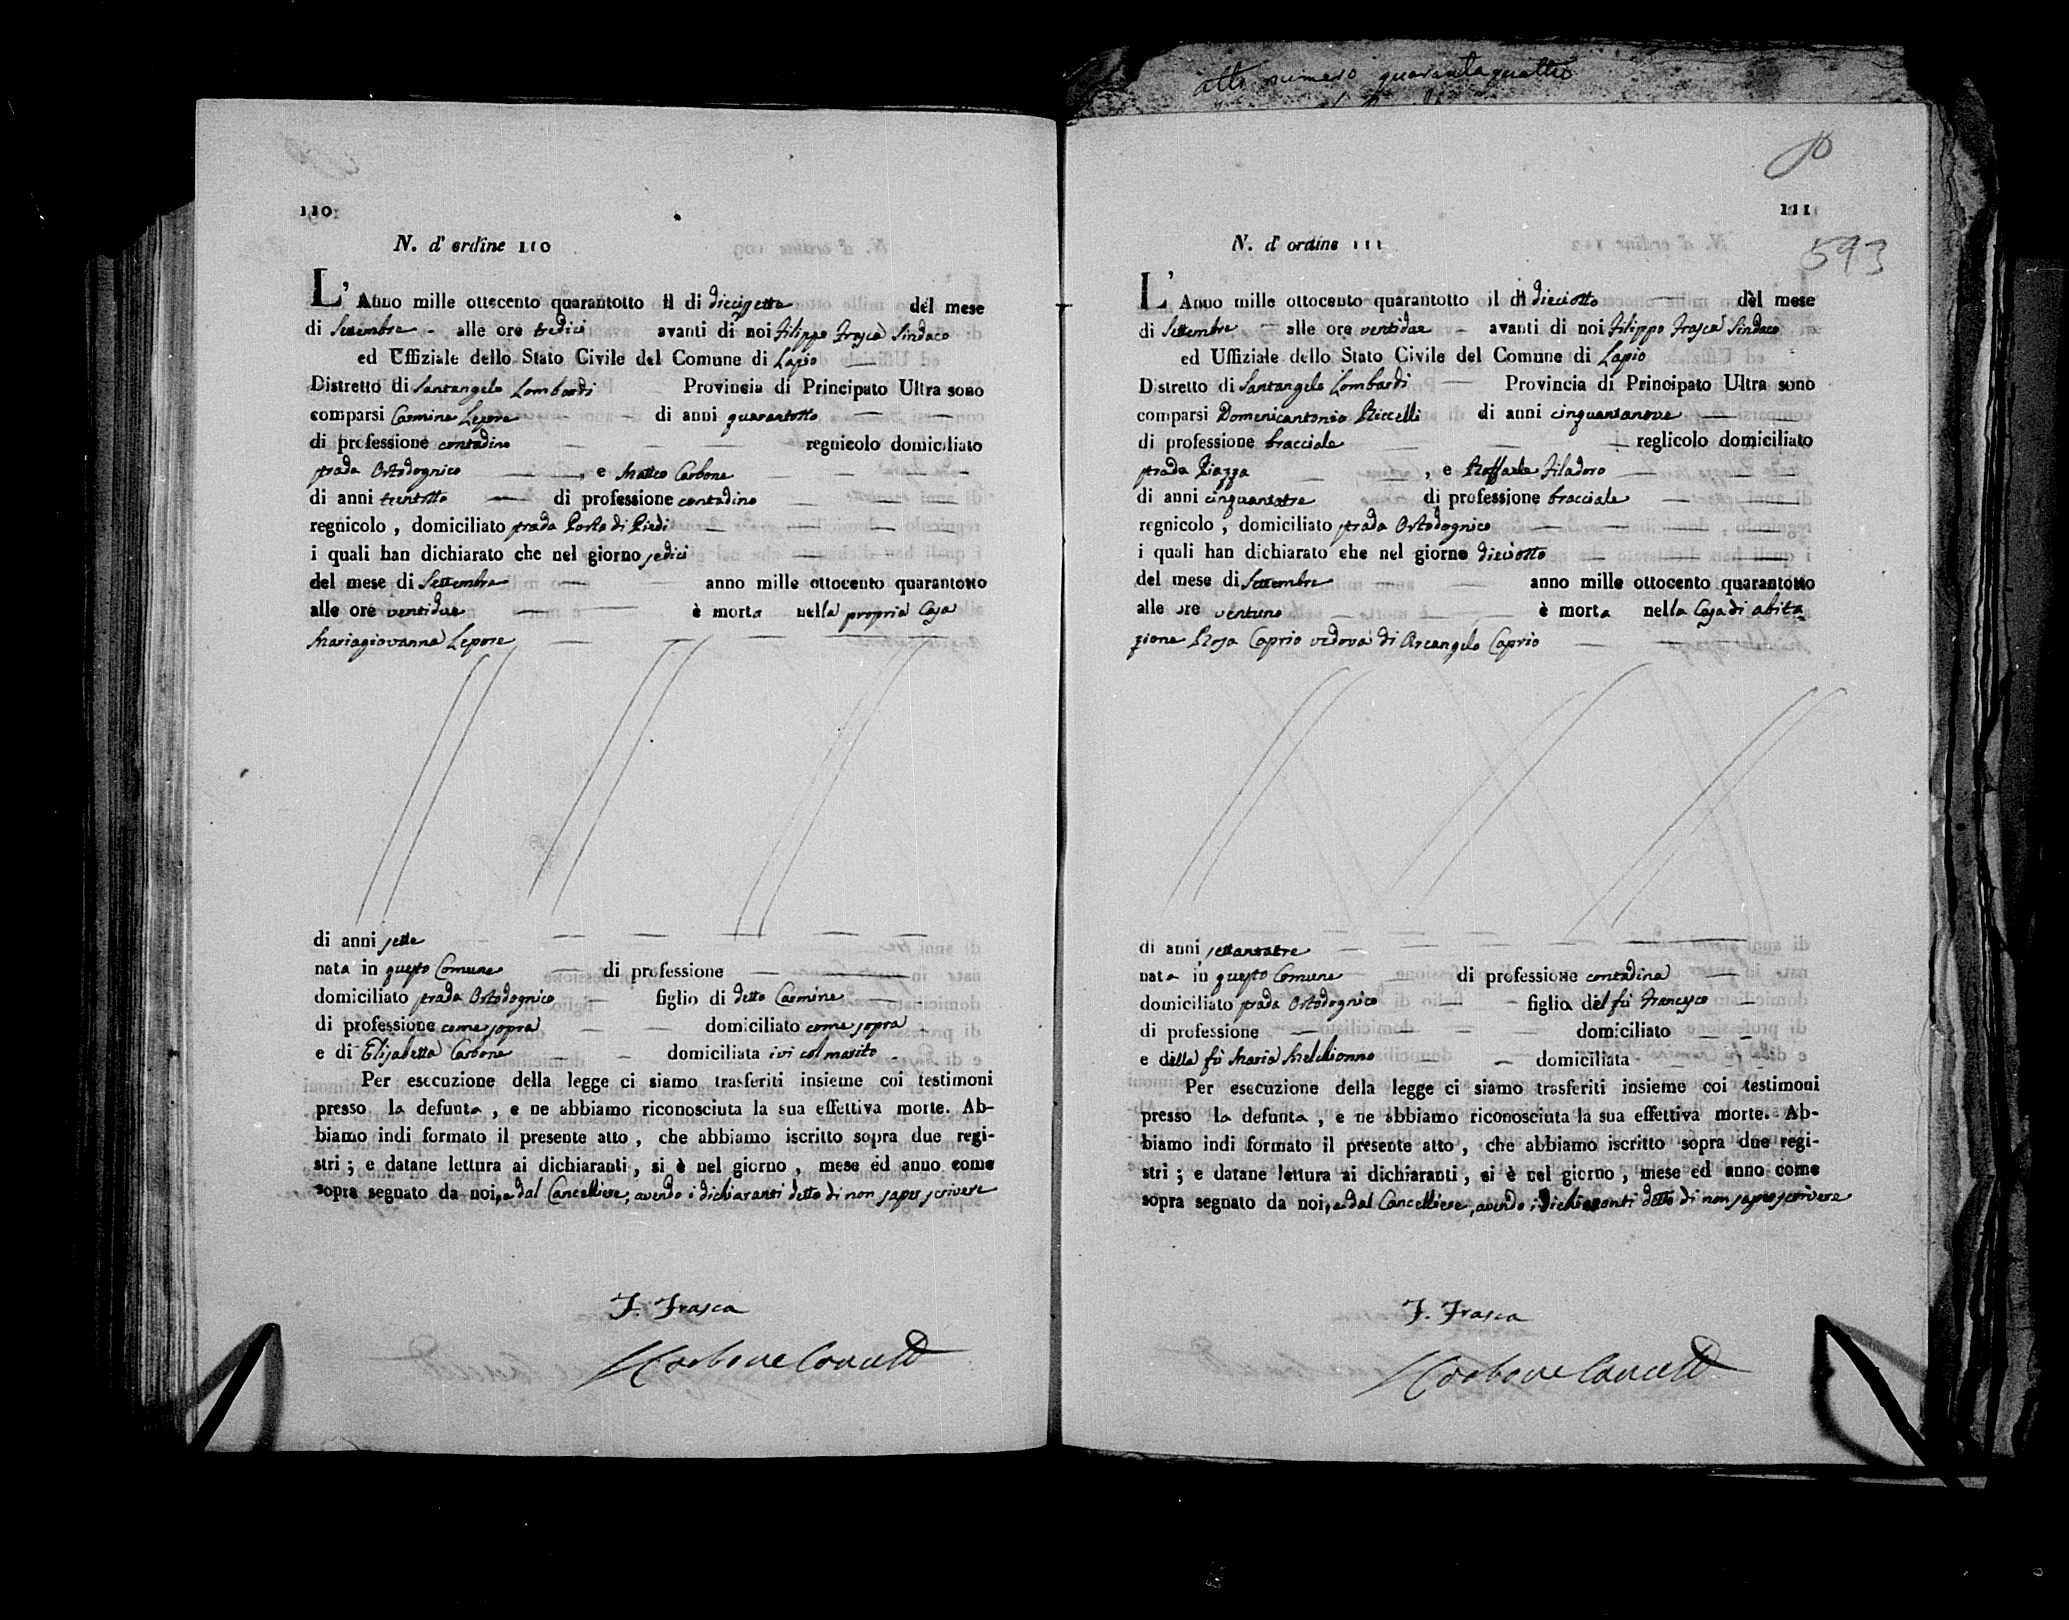 atto numero quarantaquattro
110
N. d' ordine 110
L' Anno mille ottocento quarantotto il di diecisette del mese
di Settembre alle ore tredici avanti di noi Filippo Frasca Sindaco
ed Uffiziale dello Stato Civile del Comune di Lapio
Distretto di Santangelo Lombardi Provincia di Principato Ultra sono
comparsi Carmine Lepore di anni quarantotto
di professione contadino regnicolo domiciliato
strada Ortodognico , e Matteo Carbone
di anni trentotto di professione contadino
regnicolo , domiciliato strada Porta di Piedi
i quali han dichiarato che nel giorno sedici
del mese di Settembre anno mille ottocento quarantotto
alle ore ventidue è morta nella propria Casa
Mariagiovanna Lepore
di anni sette
nata in questo Comune di professione
domiciliato strada Ortodognico figlio di detto Carmine
di professione come sopra domiciliato come sopra
e di Elisabetta Carbone domiciliata ivi col marito
Per esecuzione della legge ci siamo trasferiti insieme coi testimoni
presso la defunta , e ne abbiamo riconosciuta la sua effettiva morte. Ab-
biamo indi formato il presente atto , che abbiamo iscritto sopra due regi-
stri ; e datane lettura ai dichiaranti , si è nel giorno , mese ed anno come
sopra segnato da noi, e dal Cancelliere, avendo i dichiaranti detto di non saper scrivere
F. Frasca
Carbone Canc
111
593
N. d' ordine 111
L' Anno mille ottocento quarantotto il di dieciotto del mese
di Settembre alle ore ventidue avanti di noi Filippo Frasca Sindaco
ed Uffiziale dello Stato Civile del Comune di Lapio
Distretto di Santangelo Lombardi Provincia di Principato Ultra sono
comparsi Domenicantonio Riccelli di anni cinquantanove
di professione bracciale reglicolo domiciliato
strada Piazza , e Raffaele Filadoro
di anni cinquantatre di professione bracciale
regnicolo , domiciliato strada Ortodognico
i quali han dichiarato che nel giorno dieciotto
del mese di Settembre anno mille ottocento quarantotto
alle ore ventuno è morta nella Casa di abita
zione Rosa Caprio vedova di Arcangelo Caprio
di anni settantatre
nata in questo Comune di professione contadina
domiciliato strada Ortodognico figlia del fù Francesco
di professione domiciliato
e della fù Maria Melchionno domiciliata
Per esecuzione della legge ci siamo trasferiti insieme coi testimoni
presso la defunta , e ne abbiamo riconosciuta la sua effettiva morte. Ab-
biamo indi formato il presente atto , che abbiamo iscritto sopra due regi-
stri ; e datane lettura ai dichiaranti , si è nel giorno , mese ed anno come
sopra segnato da noi, e dal Cancelliere, avendo i dichiaranti detto di non saper scrivere
F. Frasca
Carbone Canc